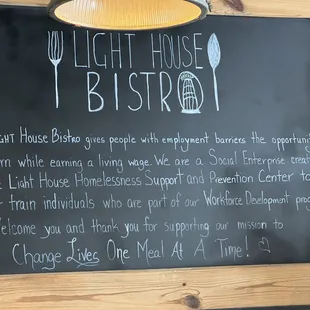 BISTRO
LIGHT HOUSE
BISTRO
GHT HOUSE BISTRO gives people with employment barriers the opportuni
rn while earning a living wage. We are a Social Enterprise crea
Light House Homelessness Support and Prevention Center to
train individuals who are part of our Workforce Development pro
elcome you and thank you for supporting our mission to
Change Lives One Meal At A Time!